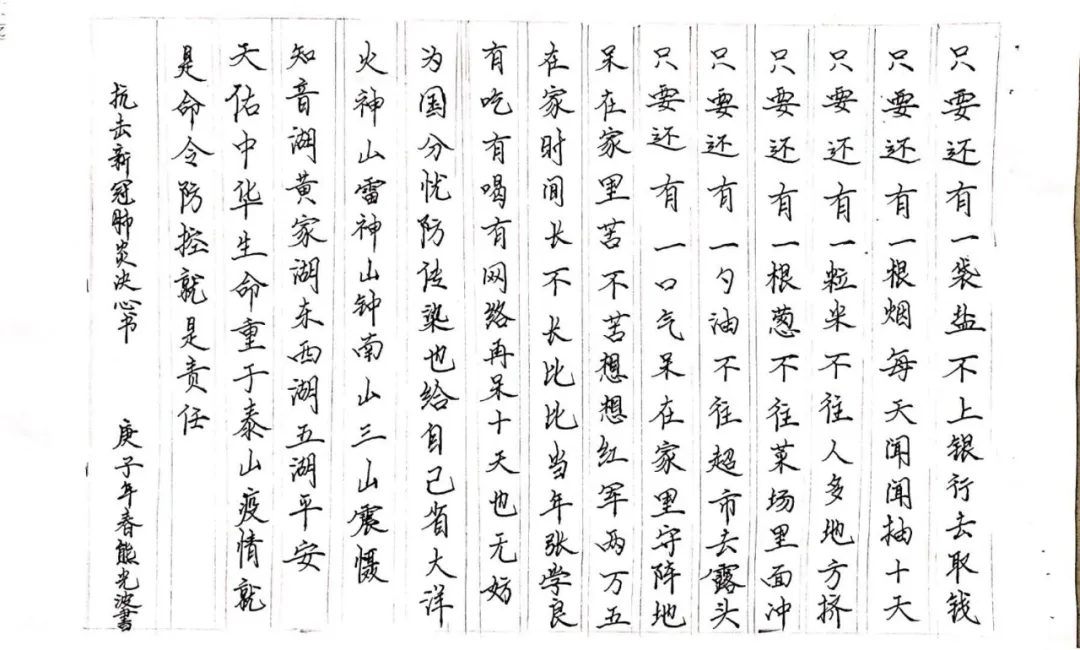 只要还有一袋盐不上银行去取钱
只要还有一根烟每天闻闻抽十天
只要还有一粒米不往人多地方挤
只要还有一根葱不往菜场里面冲
只要还有一勺油不往超市去露头
只要还有一口气呆在家里守阵地
呆在家里苦不苦想想红军两万五
在家时间长不长比比当年张学良
有吃有喝有网络再呆十天也无妨
为国分忧防传染也给自己省大洋
火神山雷神山钟南山三山震慑
知音湖黄家湖东西湖五湖平安
天佑中华生命重于泰山疫情就
是命令防控就是责任
抗击新冠肺炎决心书 庚子年春熊光波書